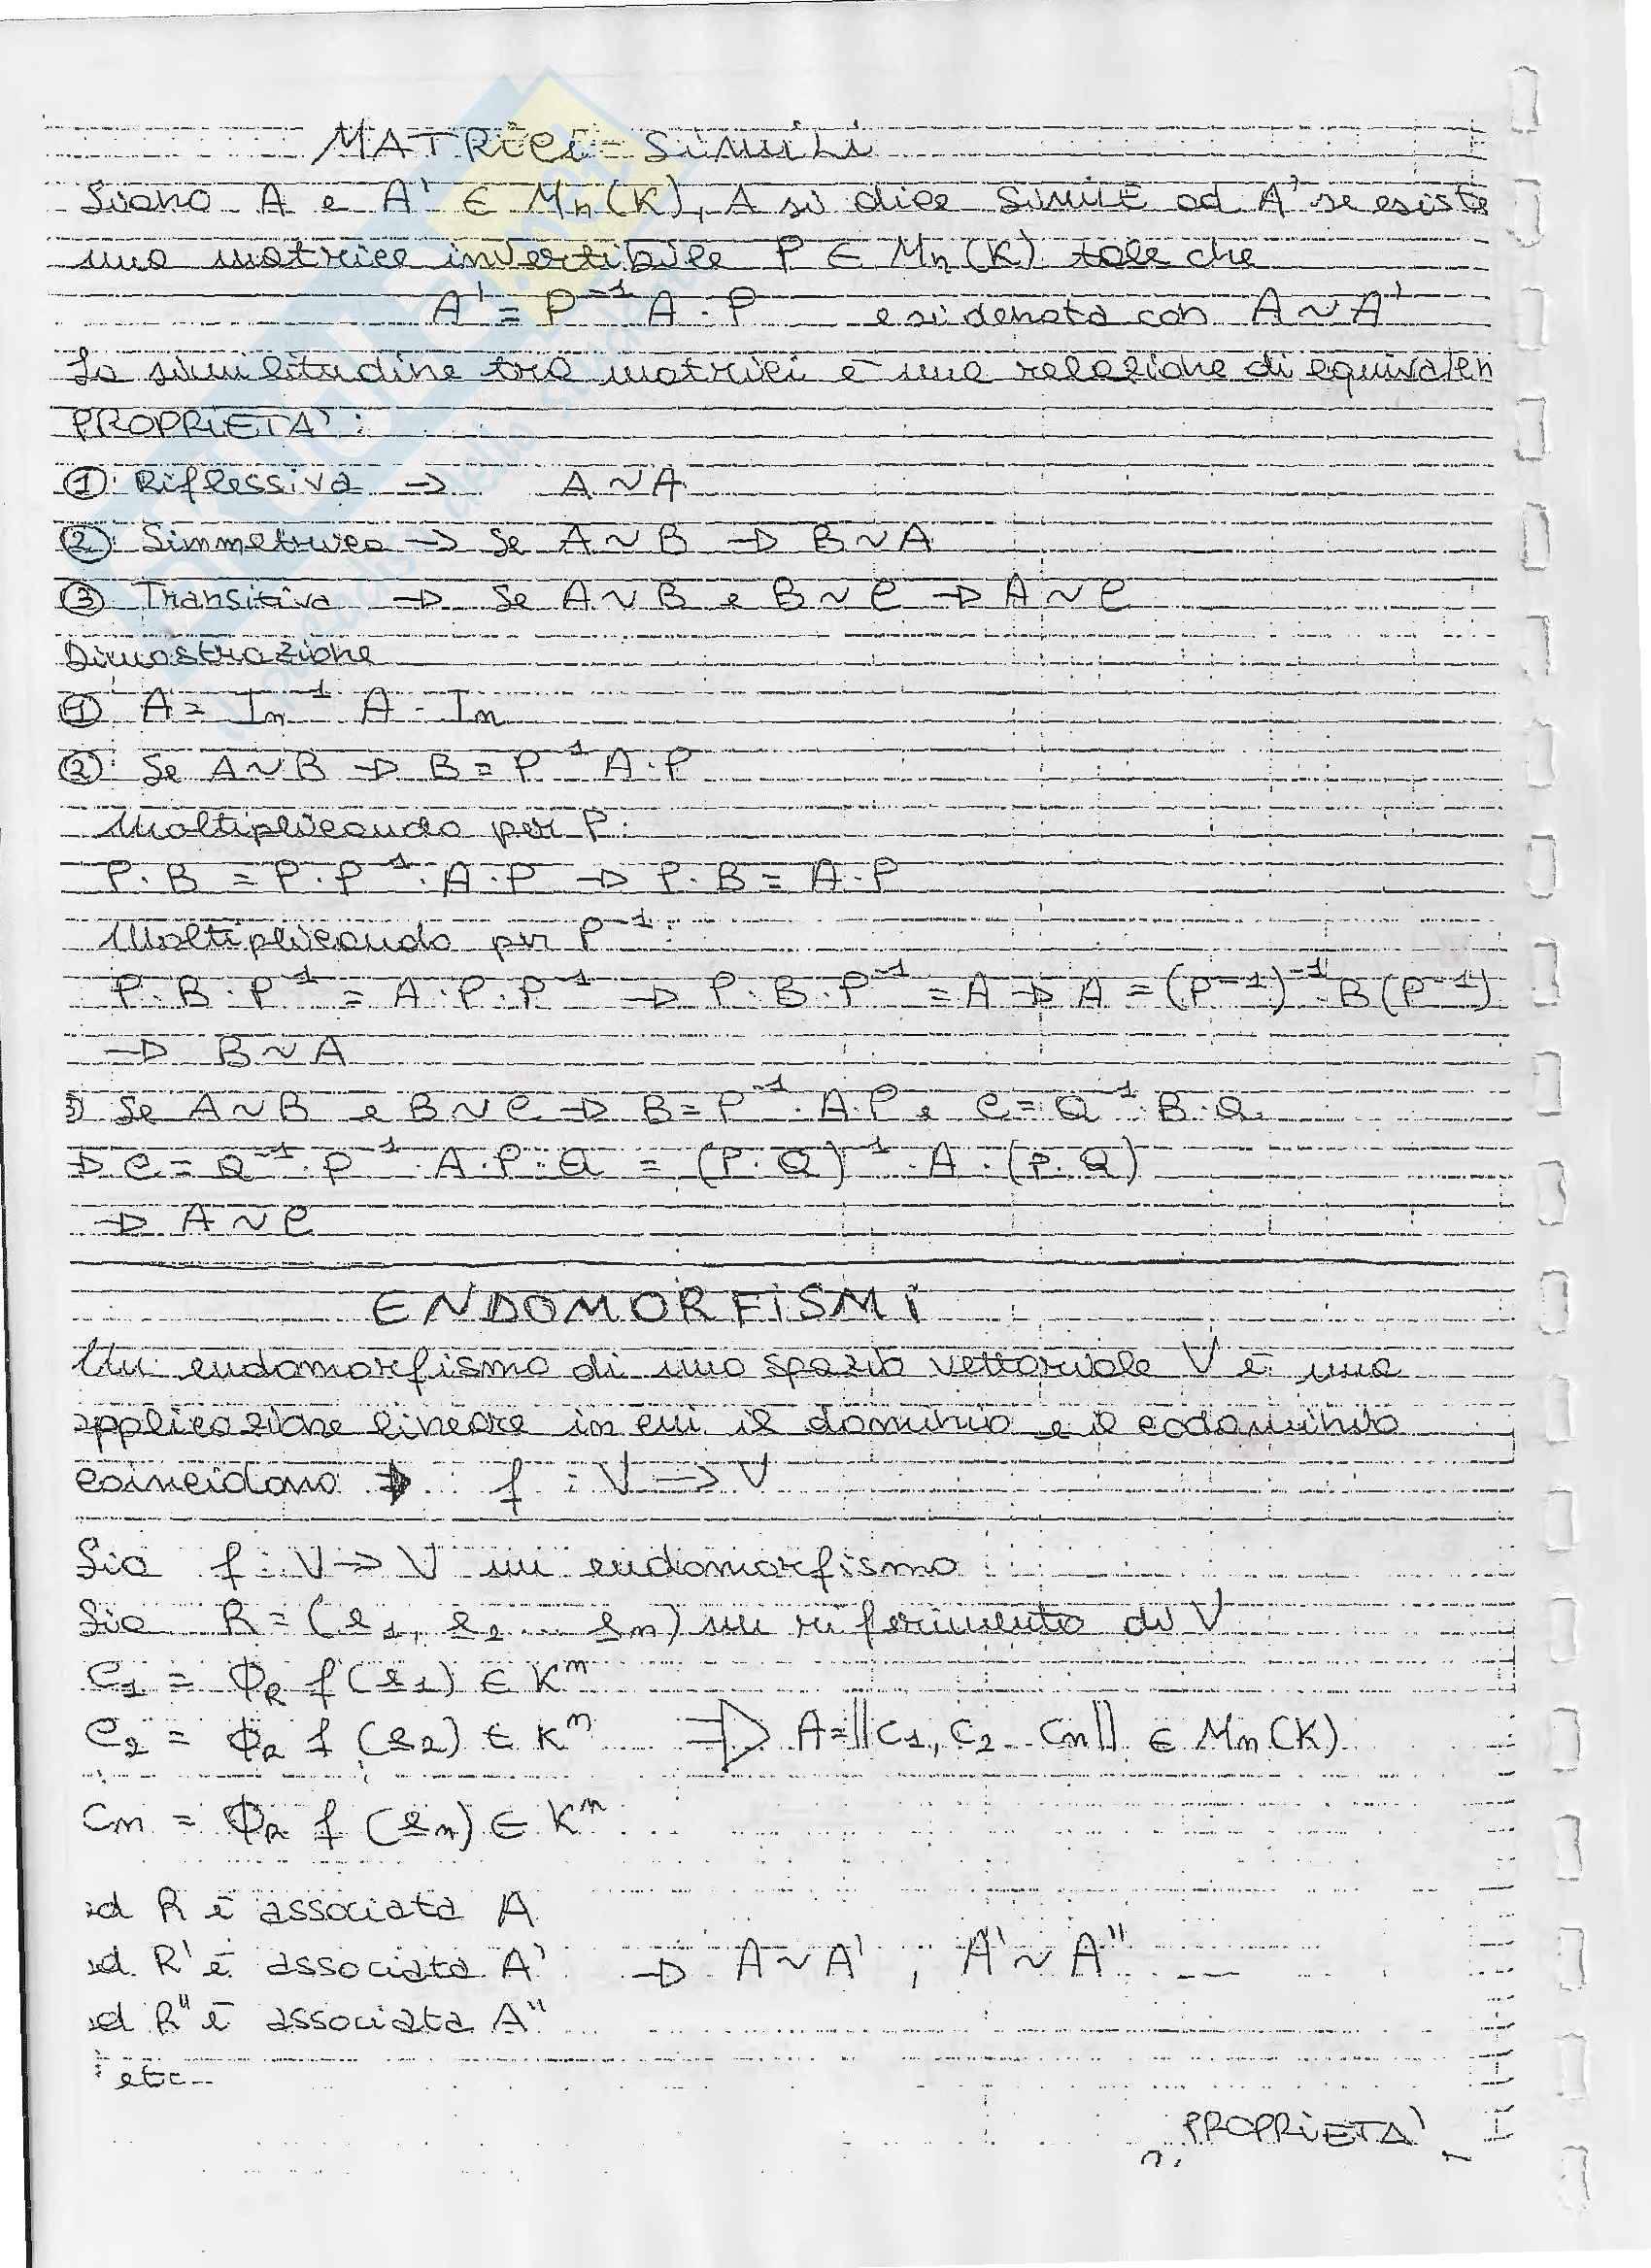 MATRICI SIMILI
Siano A e A' ∈ Mn(K), A si dice SIMILE ad A' se esiste
una matrice invertibile P ∈ Mn(K) tale che
A' = P⁻¹ A · P e si denota con A ~ A'
La similitudine tra matrici è una relazione di equivalen
PROPRIETA':
① Riflessiva → A ~ A
② Simmetrica → Se A ~ B → B ~ A
③ Transitiva → Se A ~ B e B ~ C → A ~ C
Dimostrazione
① A = In⁻¹ A · In
② Se A ~ B → B = P⁻¹ A · P
Moltiplicando per P:
P · B = P · P⁻¹ · A · P → P · B = A · P
Moltiplicando per P⁻¹:
P · B · P⁻¹ = A · P · P⁻¹ → P · B · P⁻¹ = A → A = (P⁻¹)⁻¹ · B (P⁻¹)
→ B ~ A
3) Se A ~ B e B ~ C → B = P⁻¹ · A · P e C = Q⁻¹ · B · Q
→ C = Q⁻¹ · P⁻¹ · A · P · Q = (P · Q)⁻¹ · A · (P · Q)
→ A ~ C
ENDOMORFISMI
Un endomorfismo di uno spazio vettoriale V è una
applicazione lineare in cui il dominio e il codominio
coincidono → f : V → V
Sia f : V → V un endomorfismo
Sia R = (e1, e2 ... en) un riferimento di V
C1 = ΦR f (e1) ∈ Kⁿ
C2 = ΦR f (e2) ∈ Kⁿ ⇒ A = ||C1, C2 .. Cn|| ∈ Mn (K)
Cn = ΦR f (en) ∈ Kⁿ
ad R è associata A
ad R' è associata A' → A ~ A' , A' ~ A'' ...
ad R'' è associata A''
etc..
PROPRIETA'